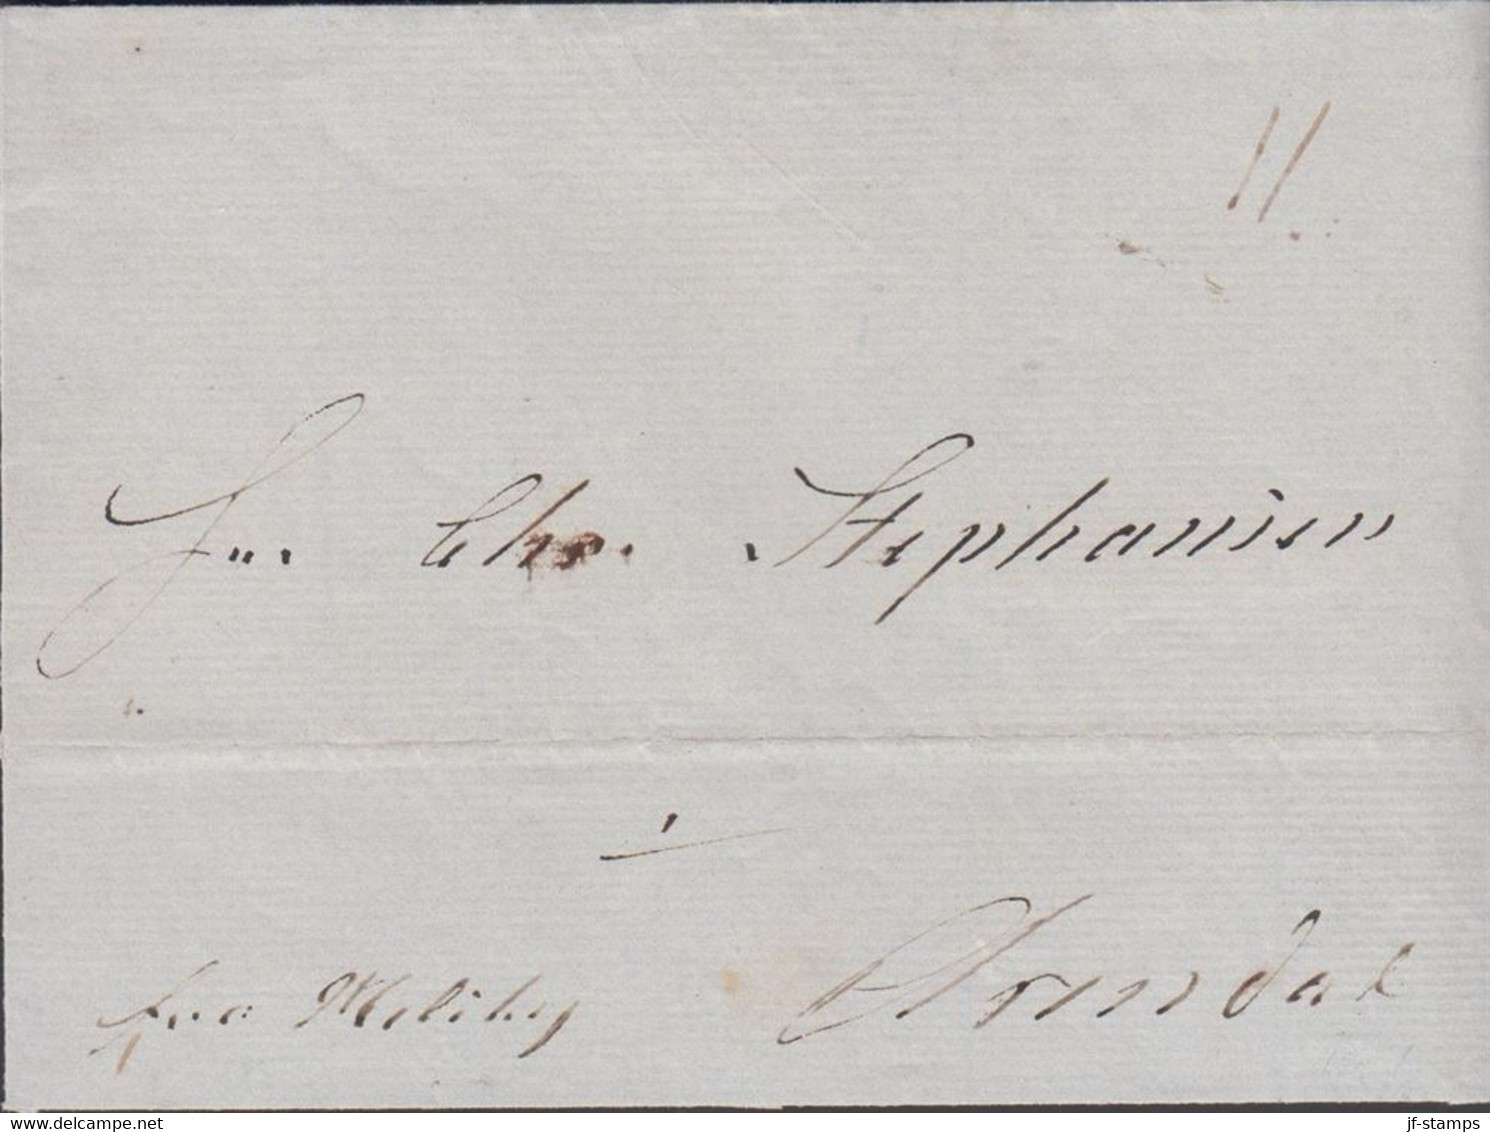 11
Hr. Chr. Stephansen
i
Arendal
fra
delcampe.net
jf-stamps